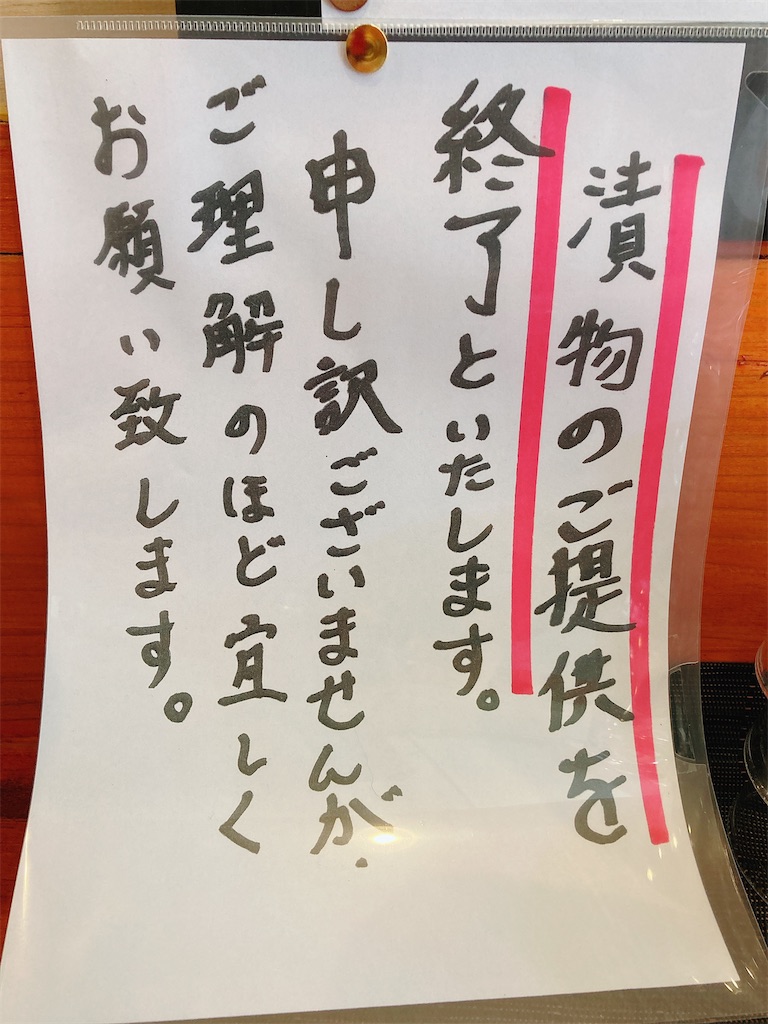 漬物のご提供を
終了といたします。
申し訳ございませんが、
ご理解のほど宜しく
お願い致します。